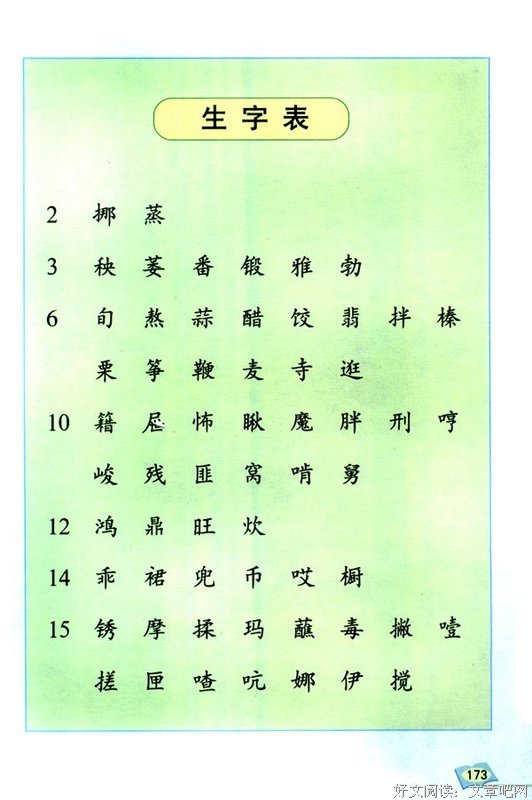 生字表
2 挪 蒸
3 秧 萎 番 锻 雅 勃
6 旬 熬 蒜 醋 饺 翡 拌 榛
栗 筝 鞭 麦 寺 逛
10 籍 屉 怖 瞅 魔 胖 刑 哼
峻 残 匪 窝 啃 舅
12 鸿 鼎 旺 炊
14 乖 裙 兜 币 哎 橱
15 锈 摩 揉 玛 蘸 毒 撇 噎
搓 匣 喳 吭 娜 伊 搅
173
好文阅读：文章吧网